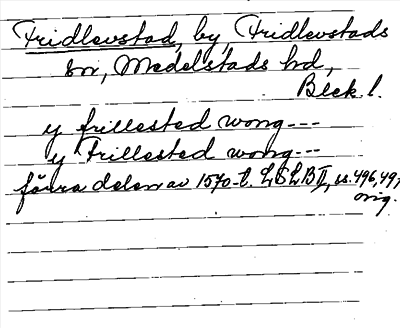 Fridlevstad, by, Fridlevstads
sn, Medelstads hd,
Blek. l.
y frillested wong---
y Frillested wong---
förra delen av 1570-t. LSLB II, ss. 496, 497,
orig.